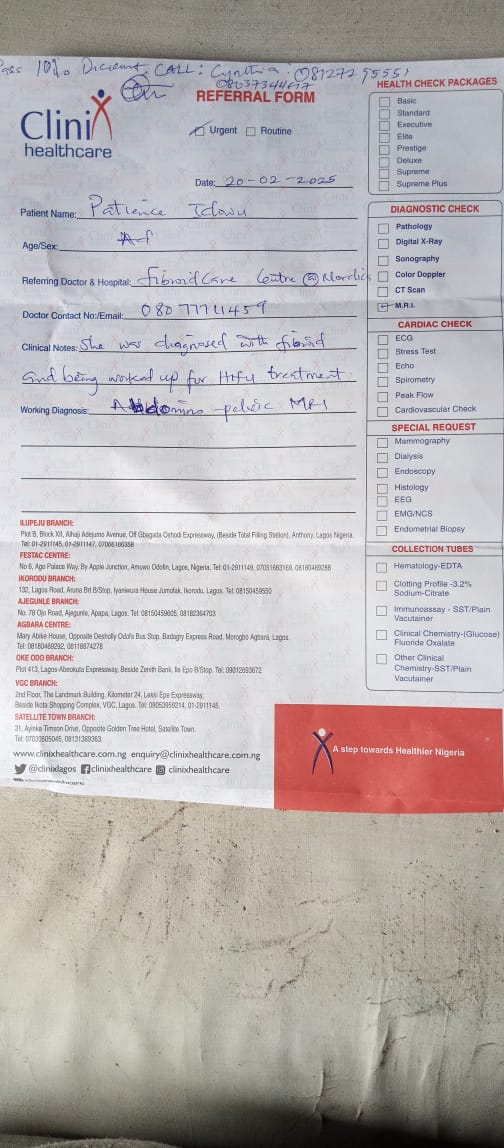 10% Discount. CALL: Cynthia: 08127295551
08037344617
Clinix
healthcare
REFERRAL FORM
Urgent Routine
Date: 20-02-2025
Patient Name: Patience Idowu
Age/Sex: Ad
Referring Doctor & Hospital: fibroid care Centre @ Nordica
Doctor Contact No:/Email: 080 77711459
Clinical Notes: She was diagnosed with fibroid
and being worked up for Hifu treatment.
Working Diagnosis: Abdomino-pelvic MRI
ILUPEJU BRANCH:
Plot B, Block XII, Alhaji Adejumo Avenue, Off Gbagada Oshodi Expressway, (Beside Total Filling Station), Anthony, Lagos Nigeria.
Tel: 01-2911145, 01-2911147, 07066186358
FESTAC CENTRE:
No 6, Ago Palace Way, By Apple Junction, Amuwo Odofin, Lagos, Nigeria. Tel: 01-2911149, 07051663169, 08180469288
IKORODU BRANCH:
132, Lagos Road, Aruna Brt B/Stop, Iyaniwura House Jumofak, Ikorodu, Lagos. Tel: 08150459550
AJEGUNLE BRANCH:
No. 78 Ojo Road, Ajegunle, Apapa, Lagos. Tel: 08150459605, 08182364703
AGBARA CENTRE:
Mary Abike House, Opposite Desholly Odofa Bus Stop, Badagry Express Road. Morogbo Agbara, Lagos.
Tel: 08180469292, 08118874278
OKE ODO BRANCH:
Plot 413, Lagos-Abeokuta Expressway, Beside Zenith Bank, Ile Epo B/Stop. Tel: 09012693672
VGC BRANCH:
2nd Floor, The Landmark Building, Kilometer 24, Lekki Epe Expressway,
Beside Ikota Shopping Complex, VGC, Lagos. Tel: 09053959214, 01-2911145.
SATELLITE TOWN BRANCH:
31, Ayinke Timson Drive, Opposite Golden Tree Hotel, Satellite Town.
Tel: 07030505045, 08131369363.
www.clinixhealthcare.com.ng enquiry@clinixhealthcare.com.ng
@clinixlagos clinixhealthcare clinixhealthcare
HEALTH CHECK PACKAGES
Basic
Standard
Executive
Elite
Prestige
Deluxe
Supreme
Supreme Plus
DIAGNOSTIC CHECK
Pathology
Digital X-Ray
Sonography
Color Doppler
CT Scan
M.R.I.
CARDIAC CHECK
ECG
Stress Test
Echo
Spirometry
Peak Flow
Cardiovascular Check
SPECIAL REQUEST
Mammography
Dialysis
Endoscopy
Histology
EEG
EMG/NCS
Endometrial Biopsy
COLLECTION TUBES
Hematology-EDTA
Clotting Profile -3.2%
Sodium-Citrate
Immunoassay - SST/Plain
Vacutainer
Clinical Chemistry-(Glucose)
Fluoride Oxalate
Other Clinical
Chemistry-SST/Plain
Vacutainer
A step towards Healthier Nigeria